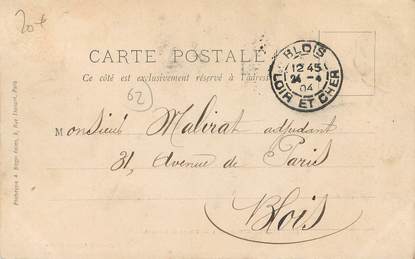 20+
CARTE POSTALE
Ce côté est exclusivement réservé à l'adresse
BLOIS
12 45
24 -4
04
LOIR ET CHER
62
Monsieur Malirat adjudant
31, Avenue de Paris
Blois